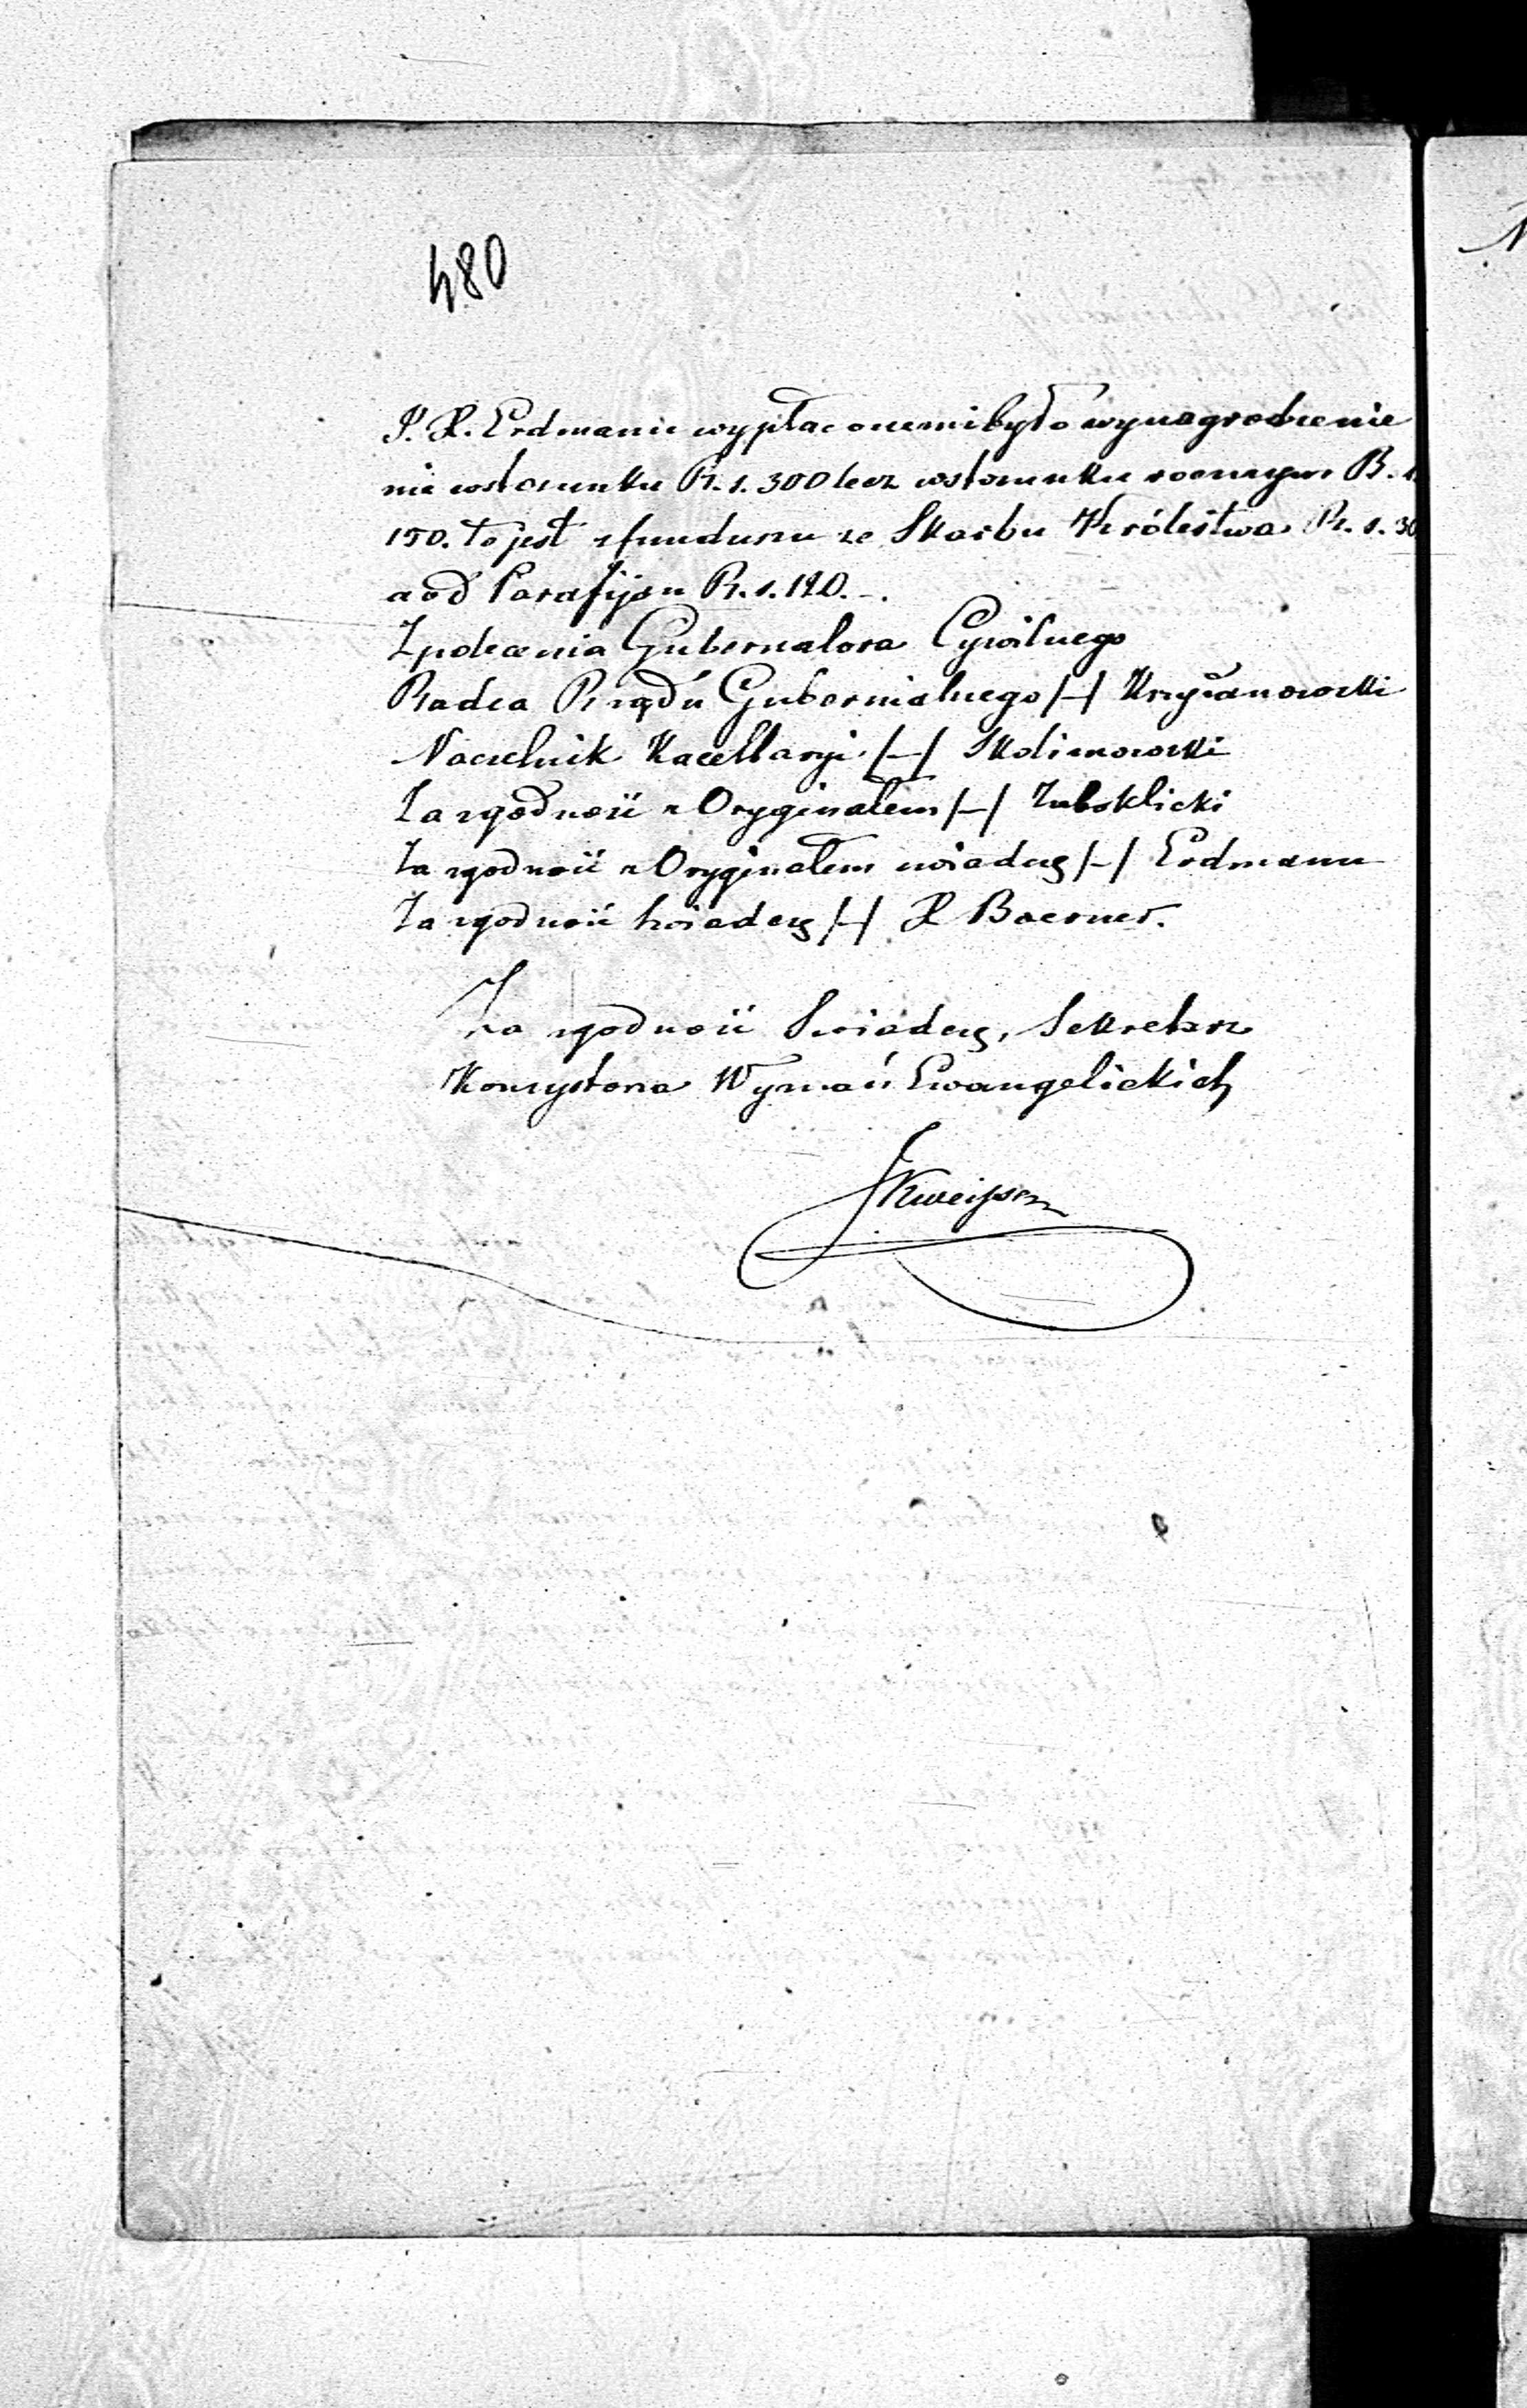 480
P. X. Erdmanie wypłaconem było wynagrodzenie
nie w stosunku R. s. 300 lecz w stosunku rocznym R. s.
150. to jest z funduszu ze Skarbu Królestwa R. s. 30
a od Parafijan R. s. 120. –.
Z polecenia Gubernatora Cywilnego
Radca Rządu Gubernialnego /–/ Krzyżanowski
Naczelnik Kacellaryi /–/ Skolimowski
Za zgodność z Oryginałem /–/
Za zgodność z Oryginałem świadczę /–/ Erdmann
Za zgodność świadczę /–/ X Boerner.
Za zgodność Świadczę, Sekretarz
Konsystorza Wyznań Ewangelickich